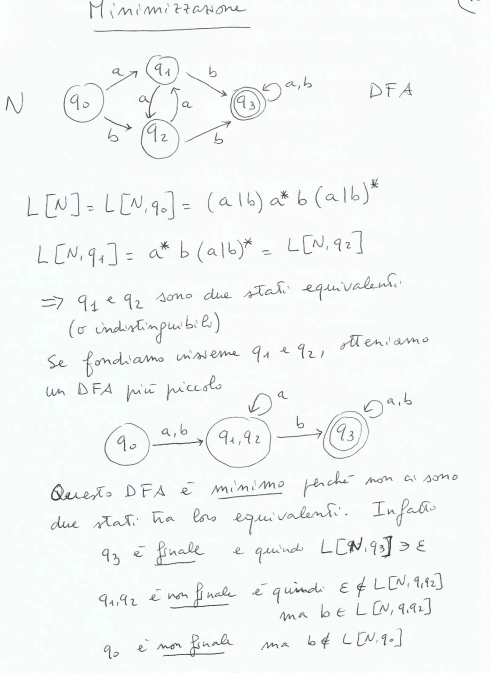 Minimizzazione
N q0 a q1 b a,b DFA
a a q3
b q2 b
L[N] = L[N,q0] = (a|b) a* b (a|b)*
L[N,q1] = a* b (a|b)* = L[N,q2]
=> q1 e q2 sono due stati equivalenti.
(o indistinguibili)
Se fondiamo insieme q1 e q2, otteniamo
un DFA più piccolo
a a,b
q0 a,b q1,q2 b q3
Questo DFA è minimo perché non ci sono
due stati tra loro equivalenti. Infatti
q3 è finale e quindi L[N,q3] ∋ ε
q1,q2 è non finale e quindi ε ∉ L[N,q1q2]
ma b ∈ L[N,q1q2]
q0 è non finale ma b ∉ L[N,q0]